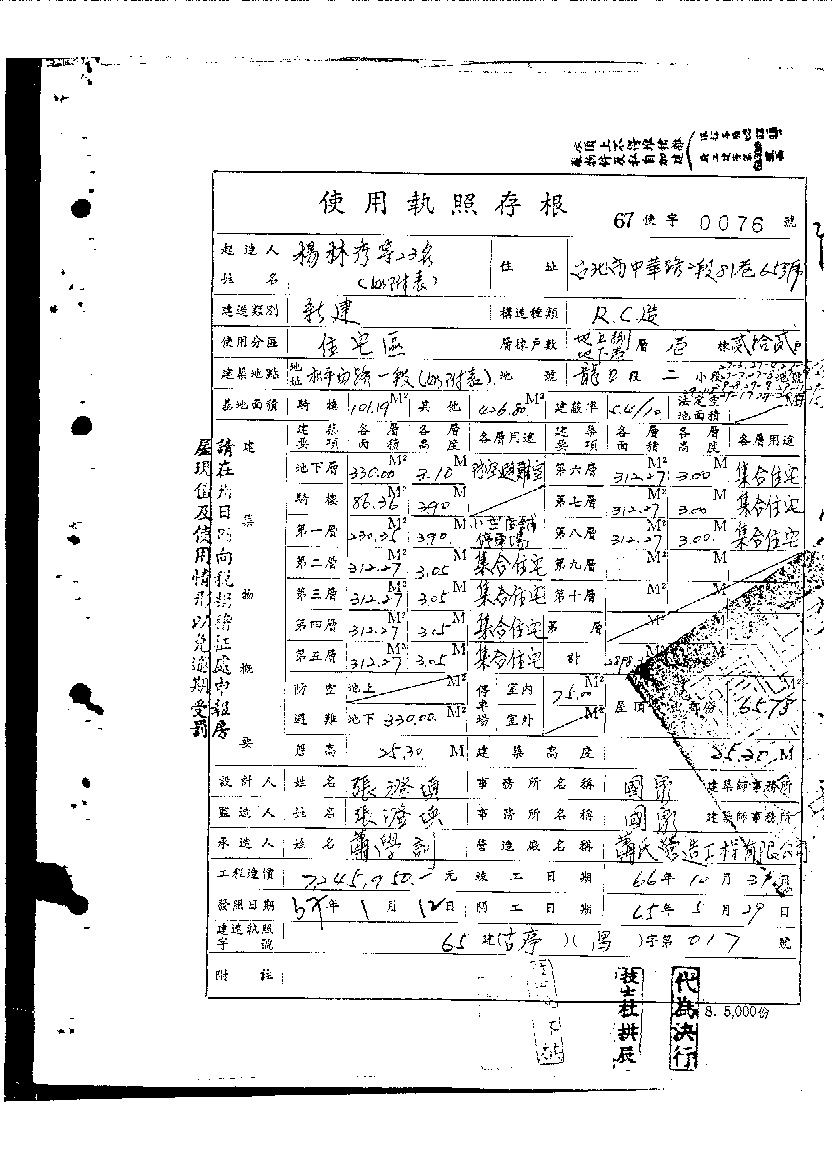 使用執照存根
67 使字 0076 號
起造人姓名 楊林秀等23名 (如附表) 住址 台北市中華路二段81巷653號
建造類別 新建 構造種類 R.C造
使用分區 住宅區 層棟戶數 地上捌 地下壹 層 壱 棟 貳拾貳 戶
建築地點 地址 和平西路一段(如附表) 地號 龍口段 二 小段
基地面積 騎樓 101.19 M² 其他 426.80 M² 建蔽率 5.4/10 法定空地面積 M²
建築要項 各層面積 各層高度 各層用途 建築要項 各層面積 各層高度 各層用途
地下層 330.00 M² 3.10 M 防空避難室 第六層 312.27 M² 3.00 M 集合住宅
騎樓 86.36 M² 3.90 M 第七層 312.27 M² 3.00 M 集合住宅
第一層 230.35 M² 3.90 M 停車場 第八層 312.27 M² 3.00 M 集合住宅
第二層 312.27 M² 3.05 M 集合住宅 第九層 M² M
第三層 312.27 M² 3.05 M 集合住宅 第十層 M² M
第四層 312.27 M² 3.05 M 集合住宅 第 層 M²
第五層 312.27 M² 3.05 M 集合住宅 計
防空 地上 M² 停車場 室內 75.00 M²
避難 地下 330.00 M² 室外 M² 屋頂 65.78
簷高 25.30 M 建築高度 25.30 M
設計人 姓名 事務所名稱 建築師事務所
監造人 姓名 事務所名稱 建築師事務所
承造人 姓名 蕭學訓 營造廠名稱 蕭氏營造工程有限公司
工程造價 7,245,950.- 元 竣工日期 66年10月31日
發照日期 67年1月12日 開工日期 65年5月29日
建造執照字號 65 建(古亭)( )字第 017 號
附註
建築物概要
請在卅日內向稅捐稽征處申報房
屋現值及使用情形以免逾期受罰
技士杜拱辰
代為決行
8. 5,000份